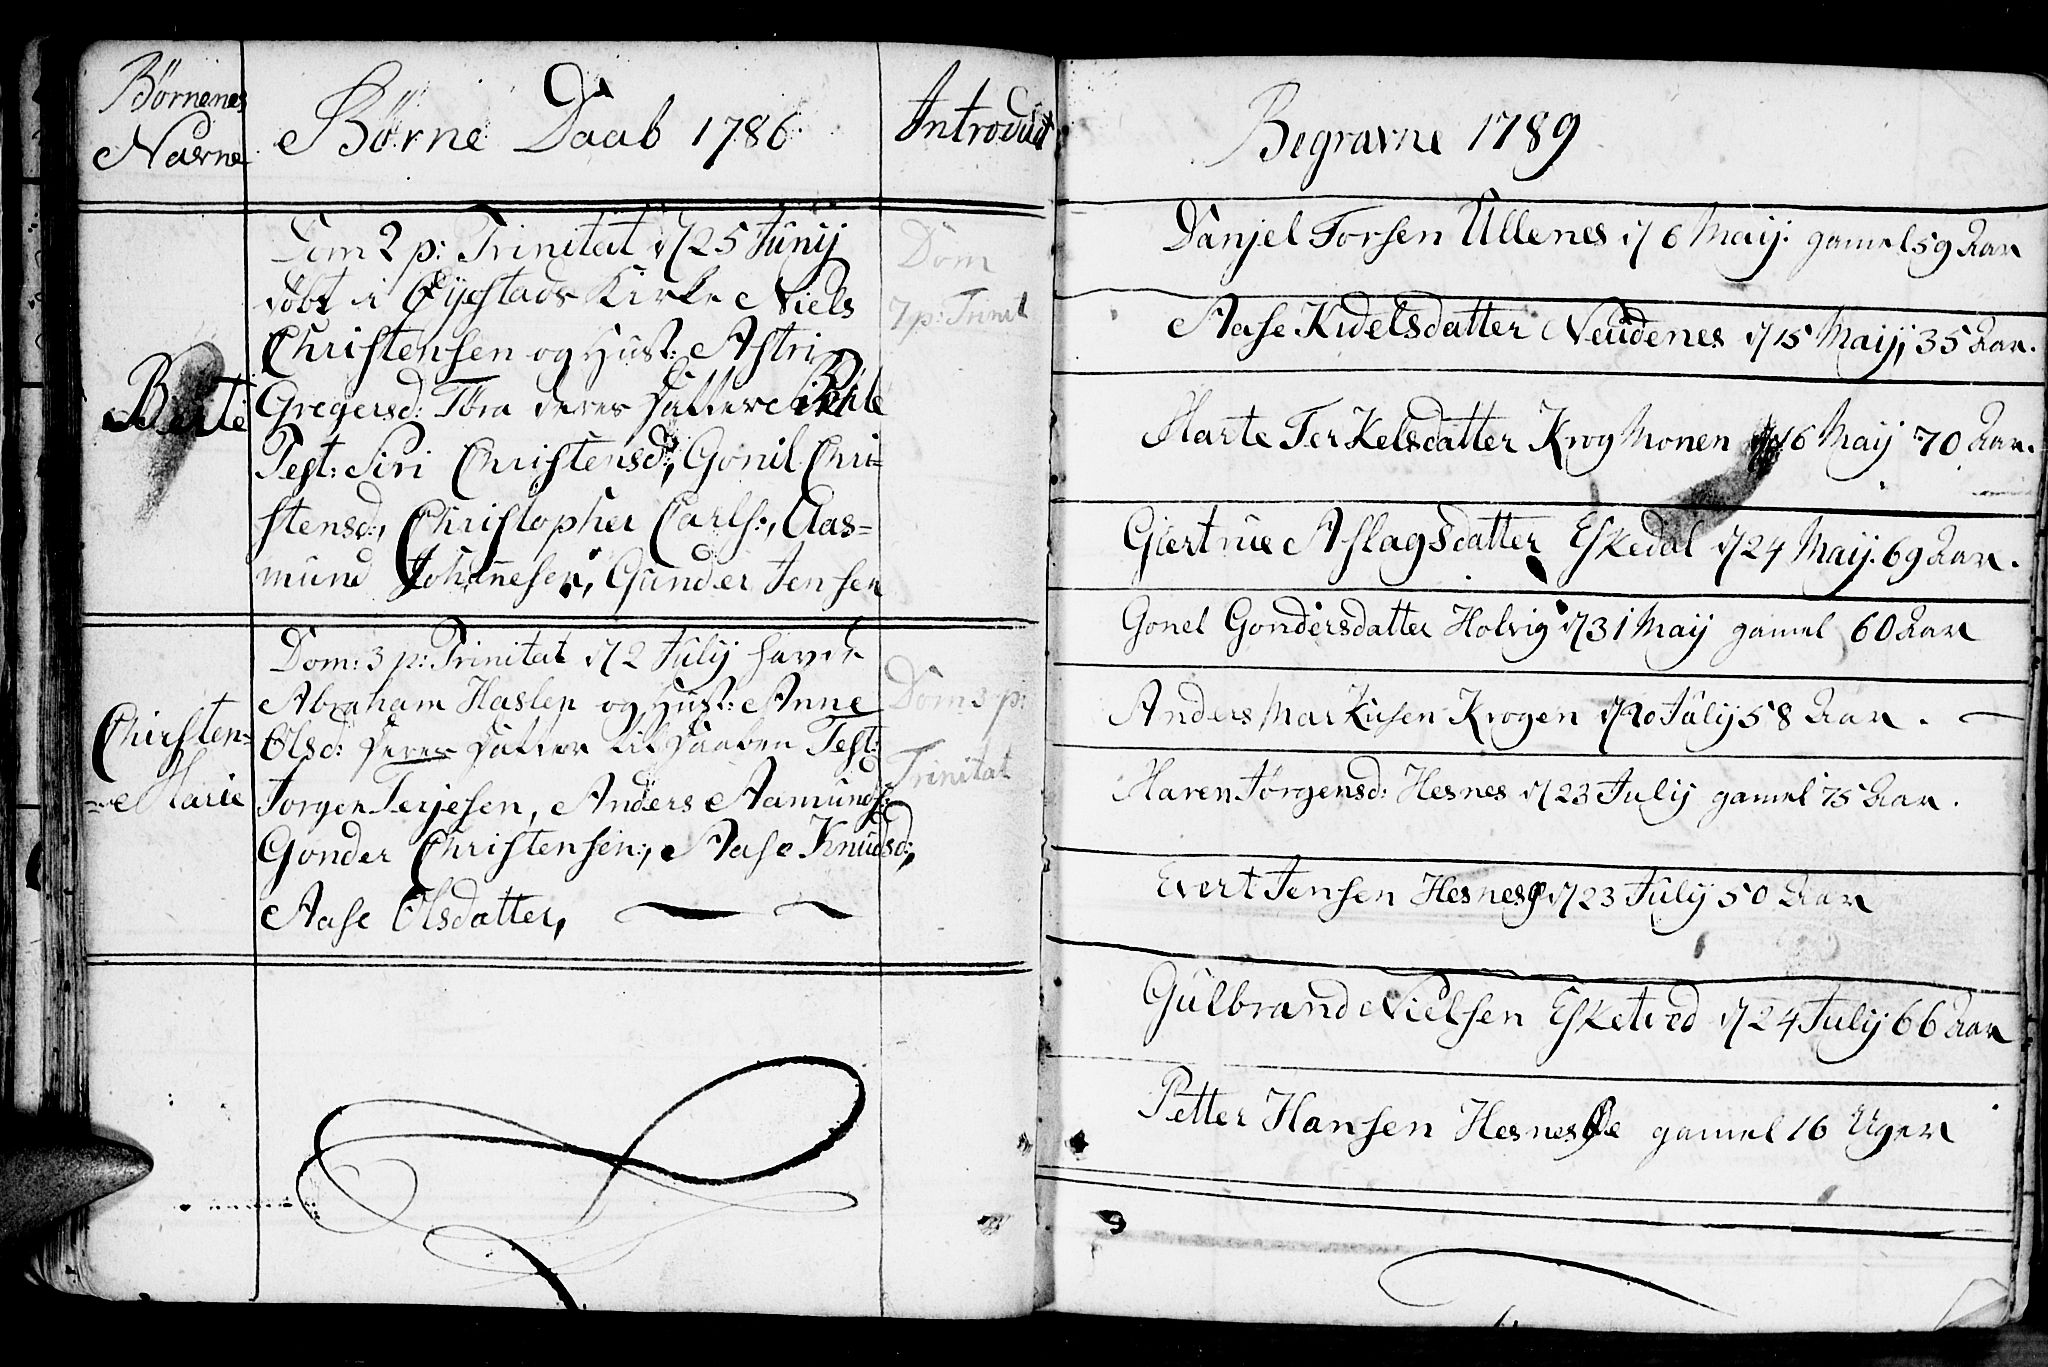 Børnenes
Navne
Børne Daab 1786
Introduct
Dom 2 p: Trinitat d 25 Junij
døbt i Øyestads Kirke Niels
Christensen og Hust: Astri
Gregersd: Tøra deres datter
Test: Siri Christensd:, Gonil Chri=
stensd:, Christopher Carls:, Aas=
mund Johannesen, Gunder Jensen
Berte
Dom
7 p: Trinit
Dom: 3 p: Trinitat d 2 Julij havde
Abraham Haslep og Hust: Anne
Olsd: deres datter til daaben Test:
Jorgen Terjesen, Anders Aamunds:
Gonder Christensen:, Aase Knudsd:,
Aase Olsdatter,
Chirsten=
=e Marie
Dom 3 p:
Trinitat
Begravne 1789
Danjel Torsen Ullenes d 6 Maij. gamel 59 Aar
Aase Kidelsdatter Neudenes d 15 Maij, 35 Aar.
Marte Terkelsdatter Krog Monen d 16 Maij 70 Aar.
Giertrue Aslagsdatter Eskedal d 24 Maij. 69 Aar.
Gonel Gondersdatter Holvig d 31 Maij gamel 60 Aar
Anders Markusen Krogen d 20 Julij 58 Aar.
Maren Jørgensd: Hesnes d 23 Julij gamel 75 Aar.
Evert Jensen Hesnesø d 23 Julij 50 Aar
Gulbrand Nielsen Esketved d 24 Julij 66 Aar
Petter Hansen Hesnes Øe gamel 16 Uger